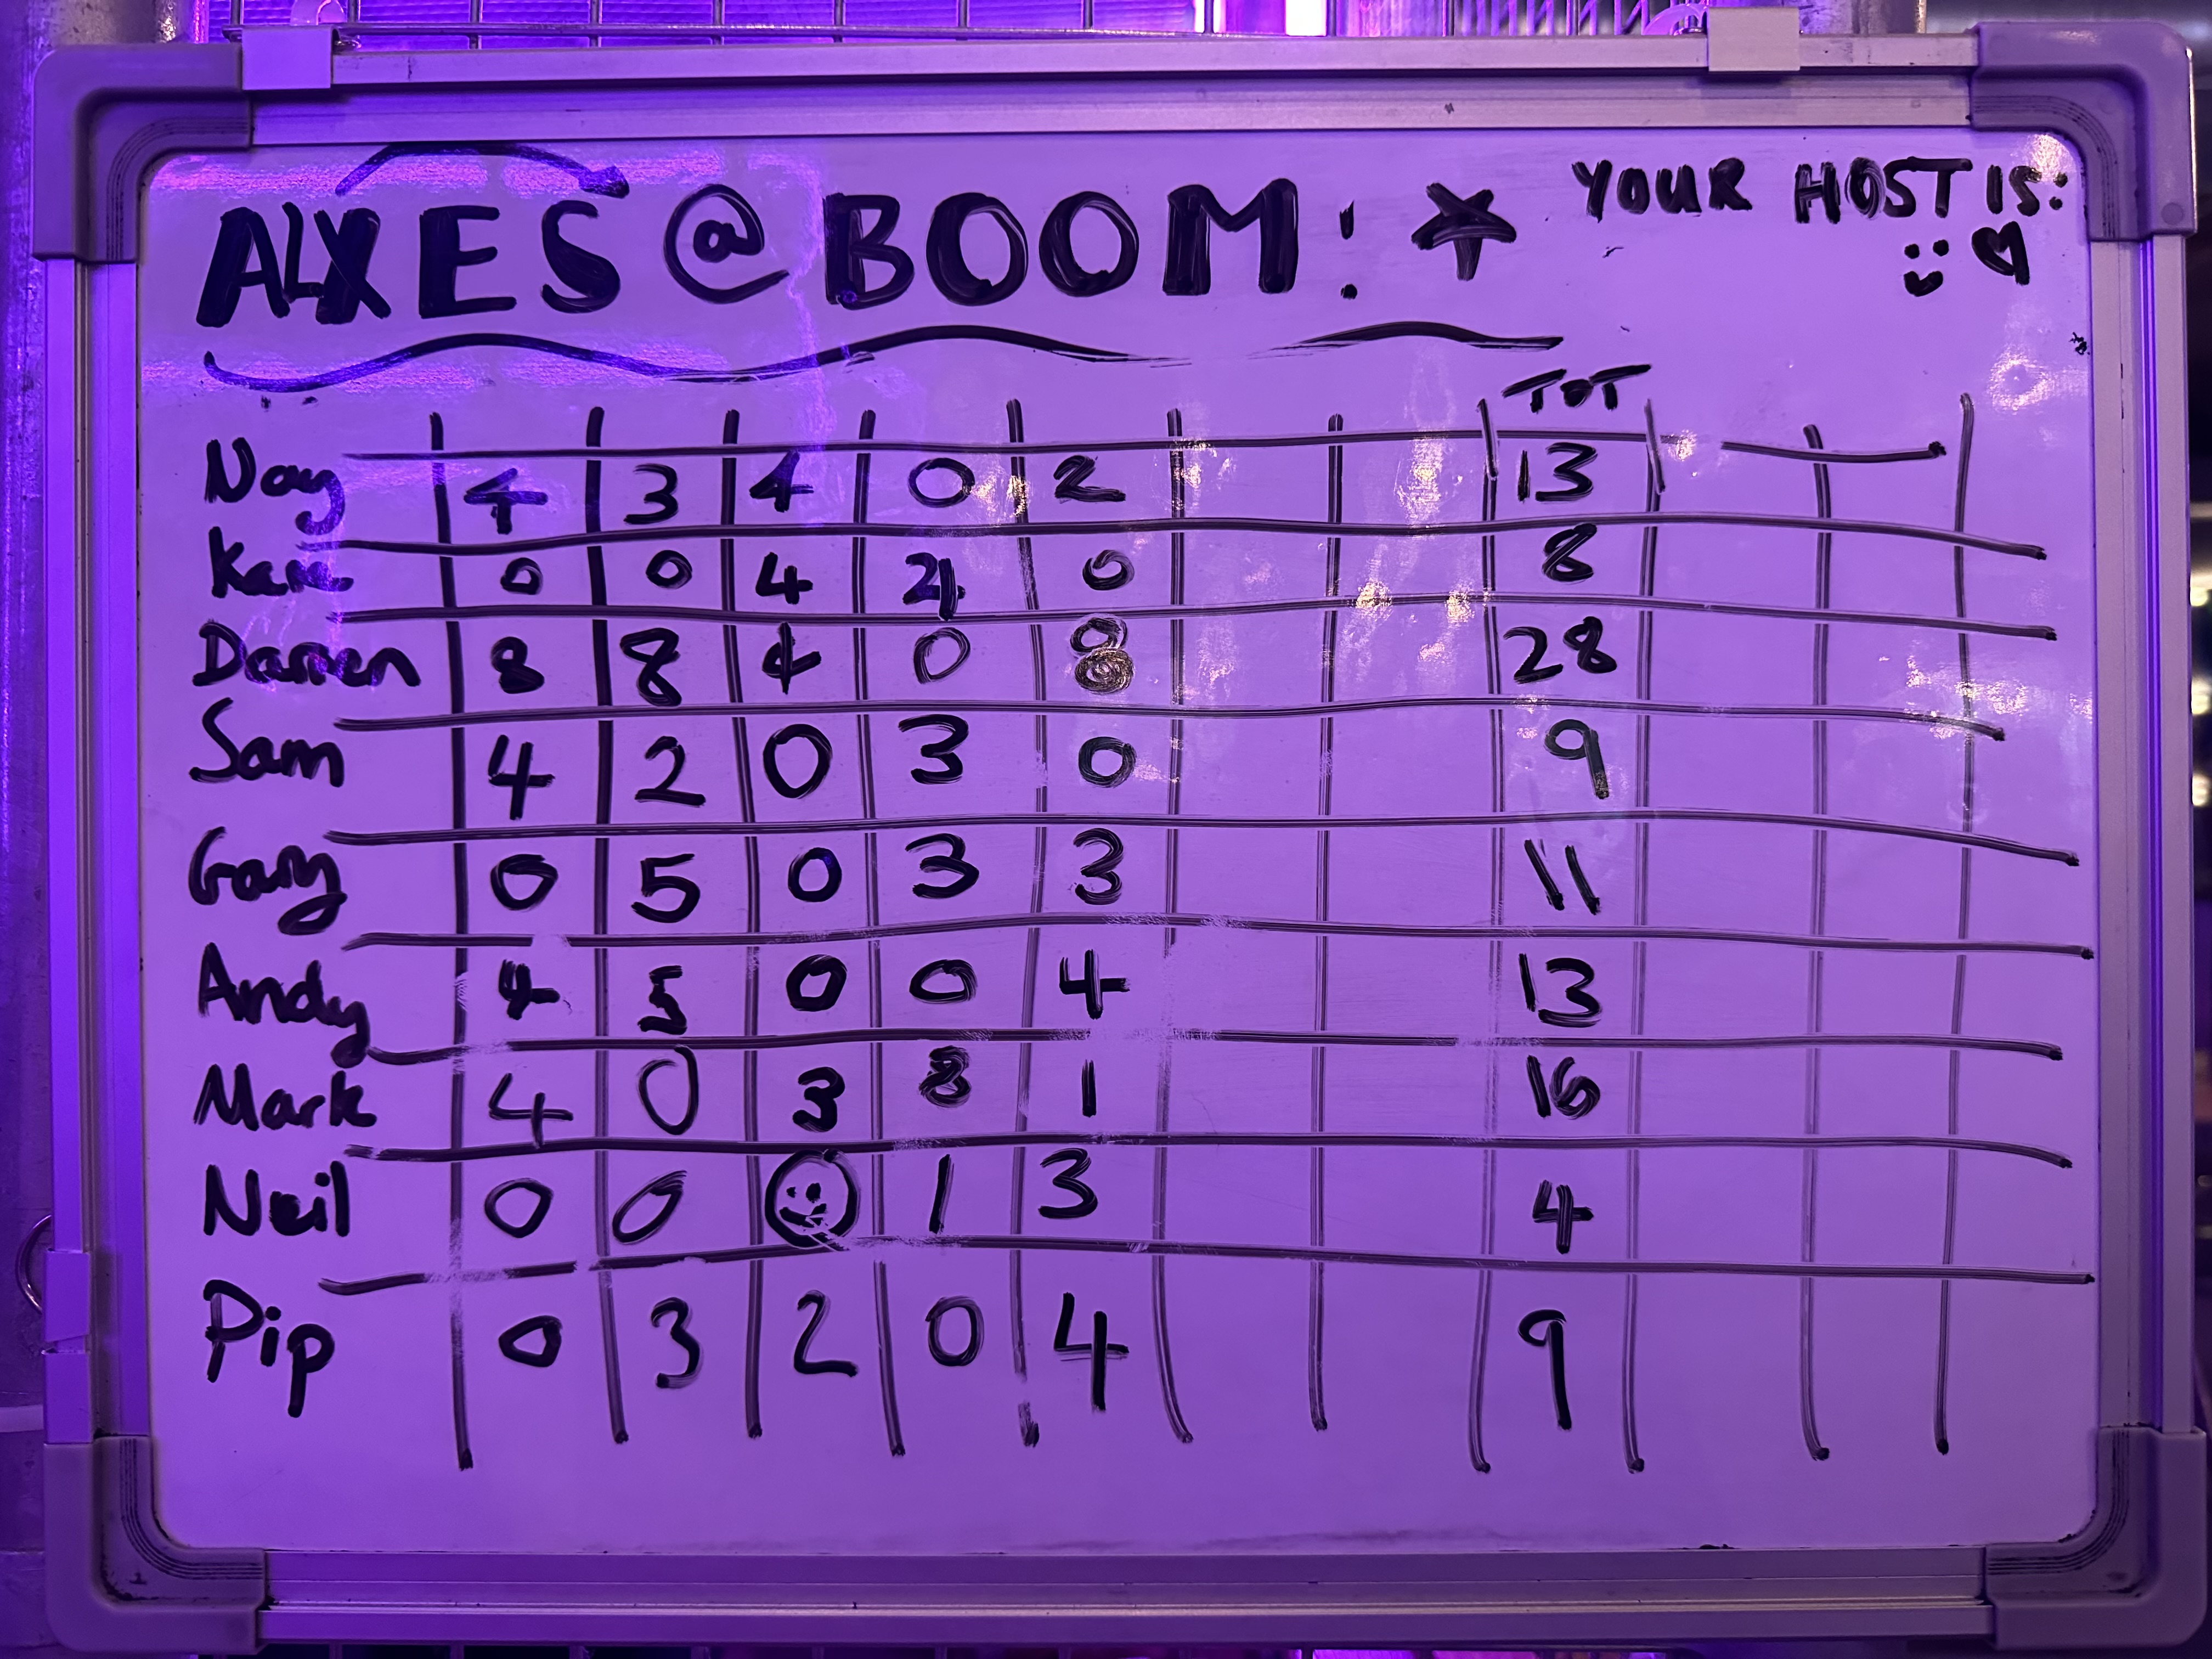 AXES @ BOOM!
YOUR HOST IS:
TOT
Nay 4 3 4 0 2 13
Kam 0 0 4 4 0 8
Darren 8 8 4 0 8 28
Sam 4 2 0 3 0 9
Gary 0 5 0 3 3 11
Andy 4 5 0 0 4 13
Mark 4 0 3 8 1 16
Neil 0 0 1 3 4
Pip 0 3 2 0 4 9